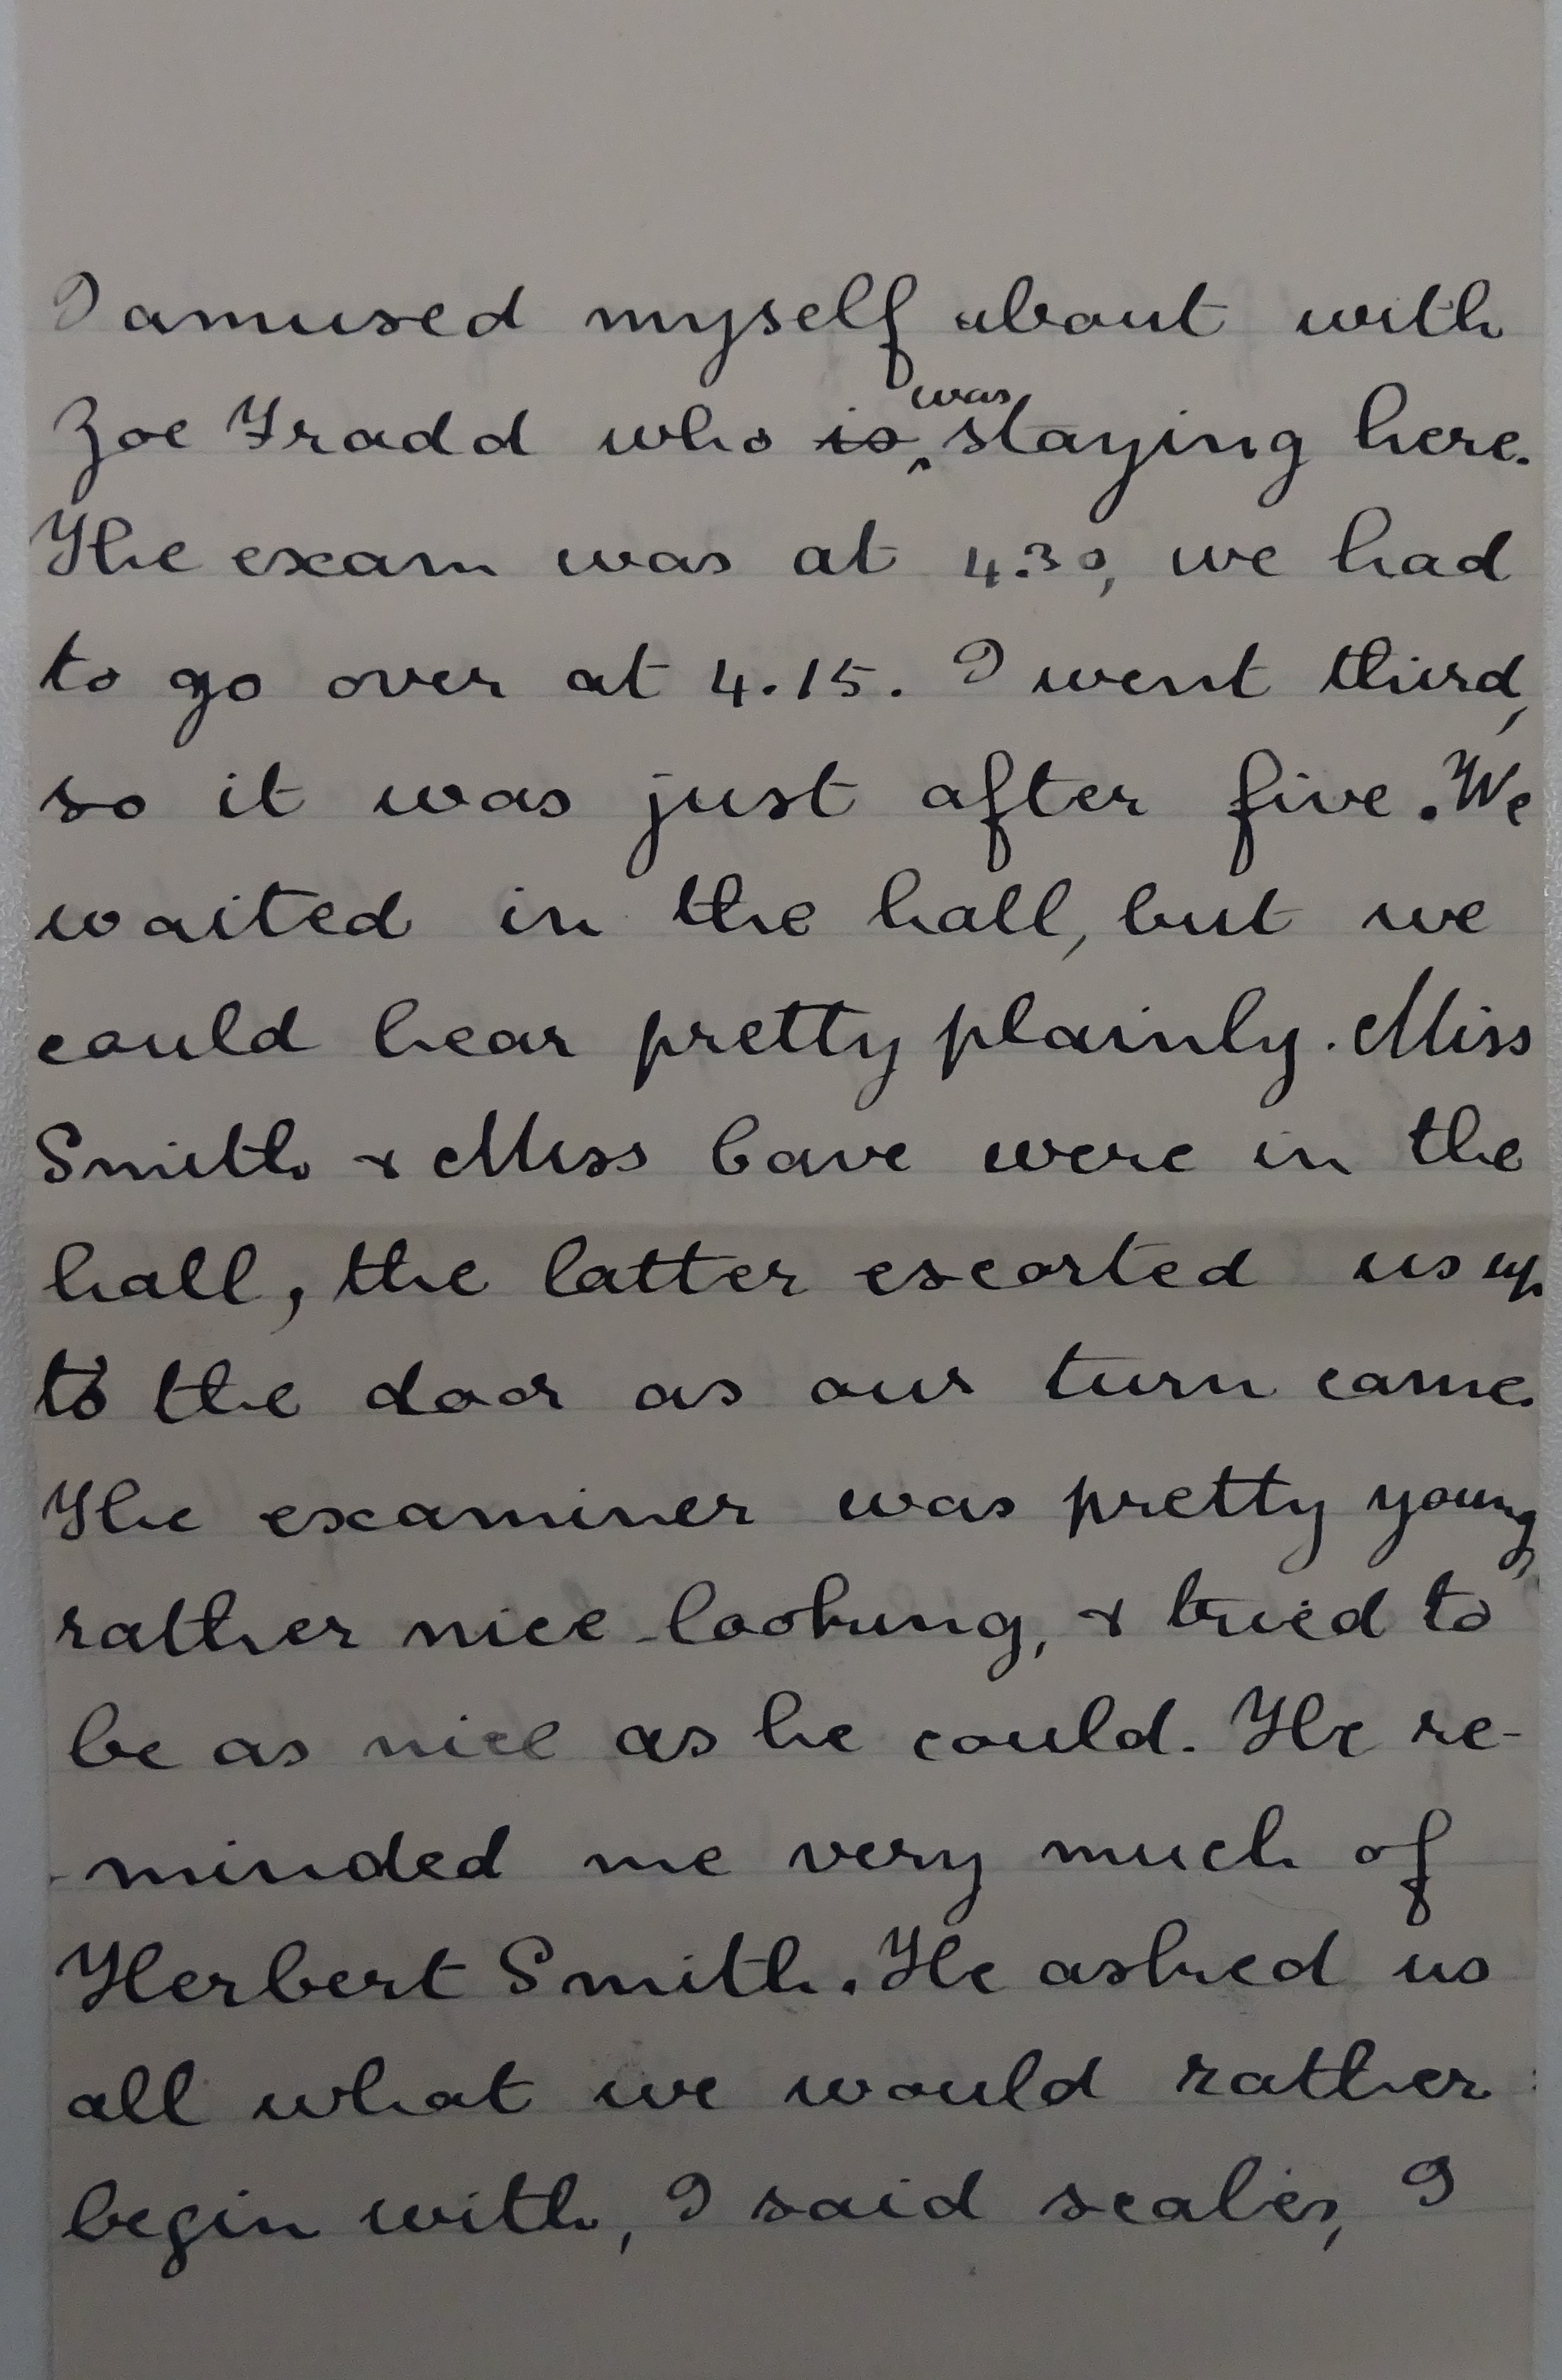 I amused myself about with
Zoe Fradd who ~~is~~ was staying here.
The exam was at 4.30, we had
to go over at 4.15. I went third,
so it was just after five. We
waited in the hall, but we
could hear pretty plainly. Miss
Smith & Miss Cave were in the
hall, the latter escorted us up
to the door as our turn came.
The examiner was pretty young,
rather nice-looking, & tried to
be as nice as he could. He re-
-minded me very much of
Herbert Smith. He asked us
all what we would rather
begin with, I said scales, I